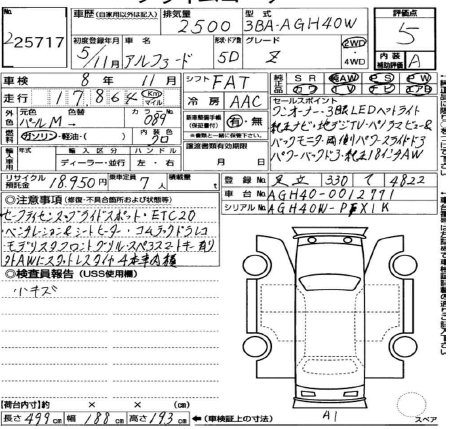 No. 225717
車歴 (自家用以外は記入)
排気量 2500
型式 3BA-AGH40W
評価点 5
初度登録年月 5/11月
車名 アルファード
形状・ドア数 5D
グレード Z
2WD・4WD
内装補助評価 A
車検 8年 11月
シフト FAT
純正品 SR AW PS PW
カワ TV ナビ エアB
走行 17,864 Km マイル
冷房 AAC
セールスポイント
ワンオーナー・3眼LEDヘッドライト
純正ナビ・地デジTV・パノラマビュー&
バックモニター・両側パワースライドドア
パワーバックドア・純正18インチAW
外色 元色 パールM → 色替
カラーNo. 089
新車整備手帳(保証書付) 有・無
燃料 ガソリン・軽油・( )
内装色 クロ
譲渡書類有効期限 月 日
輸入車用 年式 輸入区分 ディーラー・並行
ハンドル 左・右
リサイクル預託金 18,950円
乗車定員 7人
積載量 t
登録No. 足立 330 て 4822
車台No. AGH40-0012771
シリアルNo. AGH40W-PFXIK
◎注意事項 (修復・不具合箇所および状態等)
セーフティセンス・ブラインドスポット・ETC2.0
ベンチレーション&シートヒーター・コムテックドラレコ
モデリスタフロントグリル・スペアスマートキー有り
社外AWにスタッドレスタイヤ4本車内積
◎検査員報告 (USS使用欄)
小キズ
【荷台内寸】約 × × (cm)
長さ 499cm 幅 188cm 高さ 193cm ←(車検証上の寸法)
A1
スペア